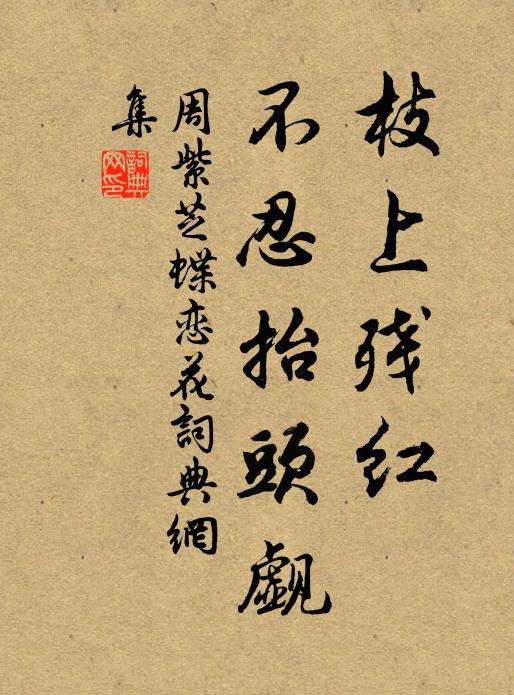 枝上残红
不忍抬頭覷
周紫芝蝶恋花詞典網
集
詞典
网印